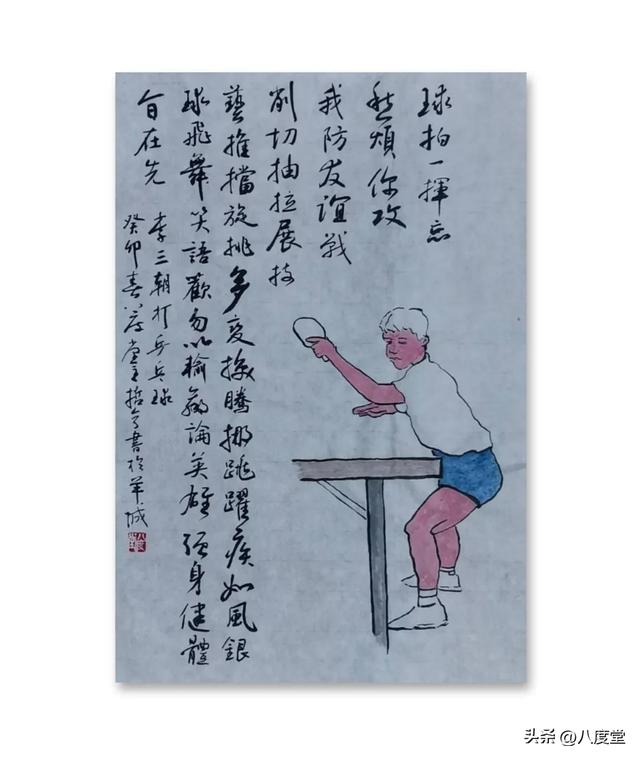 球拍一揮忘
愁煩你攻
我防友誼戰
削切抽拉展技
藝推擋旋挑多变換騰挪跳躍疾如風銀
球飛舞笑語歡勿以輸贏論英雄强身健體
旨在先
李三朝打乒乓球
癸卯春八度堂主哲書於羊城
头条 @八度堂